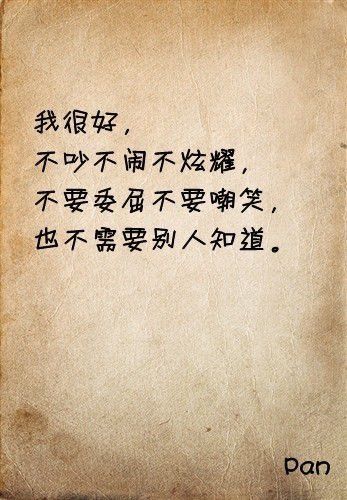 我很好，
不吵不闹不炫耀，
不要委屈不要嘲笑，
也不需要别人知道。
pan